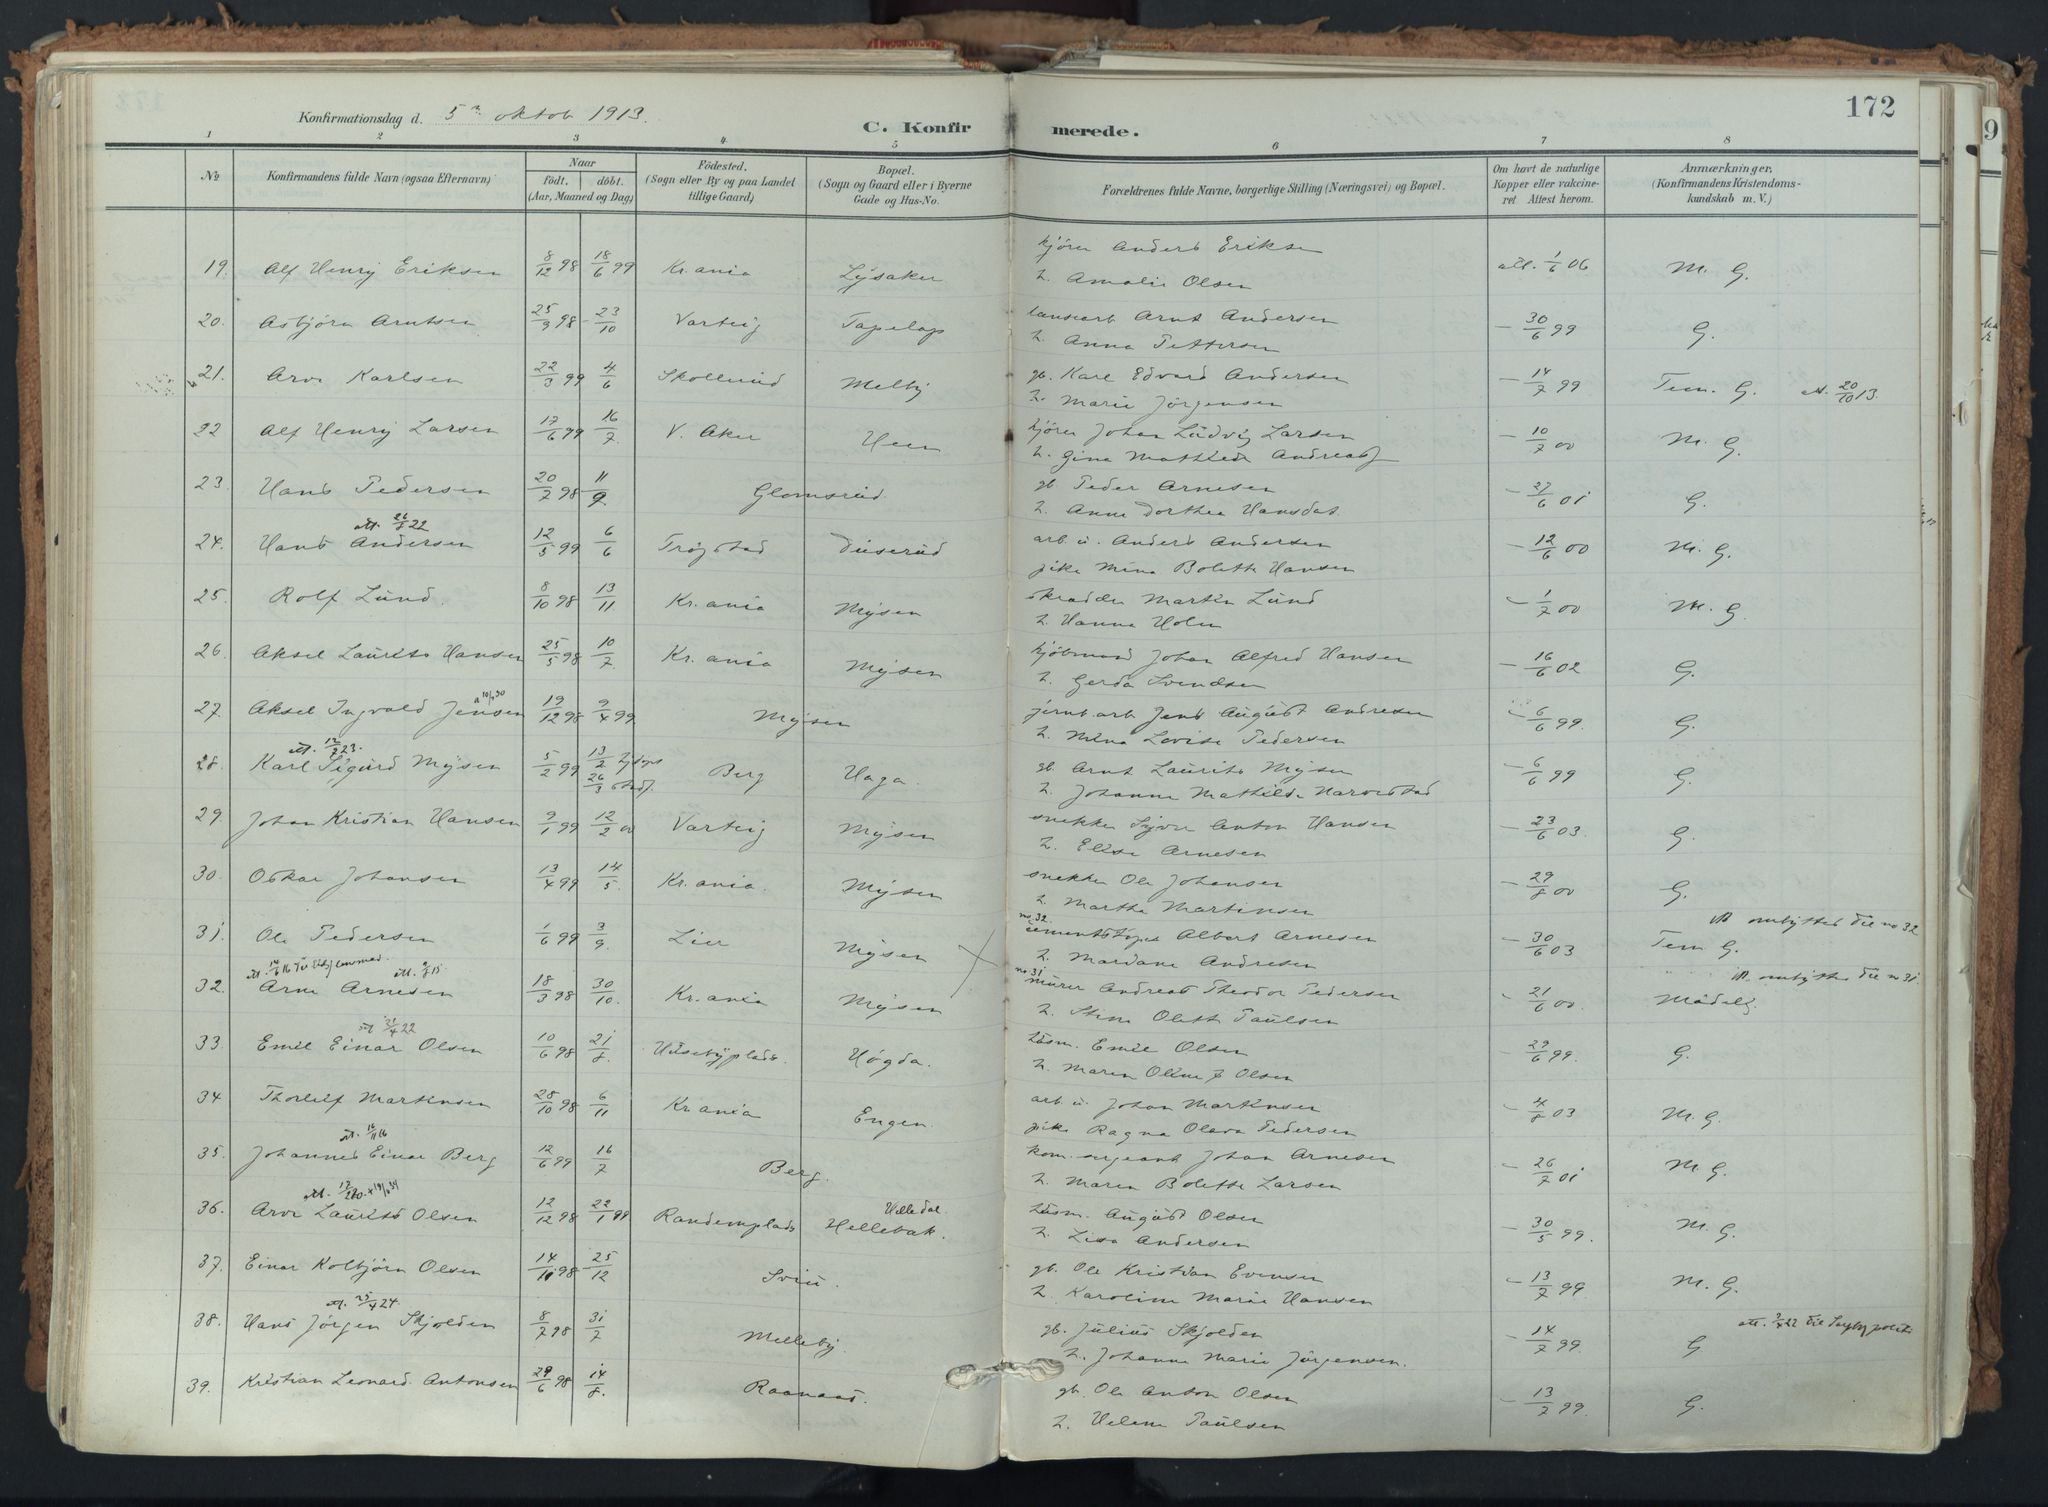 Konfirmationsdag d. 5 oktob 1913.
C. Konfirmerede.
172
1 2 3 4 5 6 7 8
No
Konfirmandens fulde Navn (ogsaa Efternavn)
Naar
født, døbt.
(Aar, Maaned og Dag)
Fødested.
(Sogn eller By og paa Landet
tillige Gaard)
Bopæl.
(Sogn og Gaard eller i Byerne
Gade og Hus-No.
Forældrenes fulde Navne, borgerlige Stilling (Næringsvei) og Bopæl.
Om havt de naturlige
Kopper eller vakcine-
ret Attest herom.
Anmærkninger.
(Konfirmandens Kristendoms-
kundskab m. V.)
19. Alf Henry Eriksen 8/12 98 18/6 99 Kr.ania Lysaker kjører Anders Eriksen att. 1/6 06 M. G.
h. Amalie Olsen
20. Asbjørn Arntsen 25/9 98 23/10 Varteig Arnt Andersen – 30/6 99 G.
h. Anna Pettersen
21. Arve Karlsen 22/3 99 4/6 Skollerud Melby gb. Karl Edvard Andersen – 14/7 99 Tem. G. att. 20/10 13.
h. Marie Jørgensen
22 Alf Henry Larsen 17/6 99 16/7 V. Aker Heen kjører Johan Ludvig Larsen – 10/7 00 M. G.
h. Gina Mathilde Andreas
23. Hans Pedersen 20/7 98 11/9 Glomsrud gb. Peder Arnesen – 27/6 01 G.
h. Anne Dorthea Hansdat.
att. 26/8 22
24. Hans Andersen 12/5 99 6/6 Trøgstad Duserud arb. u. Anders Andersen – 12/6 00 M. G.
pike Mina Bolette Hansen
25. Rolf Lund. 8/10 98 13/11 Kr.ania Mysen skrædder Martin Lund – 1/7 00 M. G.
h. Hanna Holm
26. Aksel Laurits Hansen 25/5 98 10/7 Kr.ania Mysen kjøbmand Johan Alfred Hansen – 16/6 02 G.
h. Gerda Svendsen
27. Aksel Ingvald Jensen 19/12 98 9/4 99 Mysen jernb. arb. Jens August Andresen – 6/6 99 G.
h. Mina Lovise Pedersen
28. Karl Sigurd Mysen 5/2 99 13/2 26/3 Berg Haga gb. Arnt Laurits Mysen – 6/6 99 G.
h. Johanne Mathilde Harvestad
29. Johan Kristian Hansen 9/1 99 12/2 00 Varteig Mysen snekker Syver Anton Hansen – 23/6 03. G.
h. Elise Arnesen
30. Oskar Johansen 13/4 99 14/5. Kr.ania. Mysen snekker Ole Johansen – 29/8 00 G.
h. Marthe Martinsen
31. Ole Pedersen 1/6 99 3/9. Lier Mysen no. 32 Albert Arnesen – 30/6 03 Tem G. NB ombyttes til no 32
h. Mardane Andresen
32. Arne Arnesen 18/3 98 30/10. Kr.ania Mysen no. 31 murer Andreas Theodor Pedersen – 21/6 00 Mådelig. NB ombyttes til no 31
h. Stine Olette Paulsen
att 21/4 22
33. Emil Einar Olsen 10/6 98 21/8. Husebyplads. Høgda. husm. Emil Olsen – 29/6 99. G.
h. Maren Oline Olsen
34 Thorleif Martinsen 28/10 98 6/11 Kr.ania Engen. arb. u. Johan Martinsen – 4/8 03 M. G.
pike Ragna Olava Pedersen
att. 16/11 16
35. Johannes Einar Berg 12/6 99 16/7 Berg. kom. sergeant Johan Arnesen – 26/7 01 M. G.
h. Maren Bolette Larsen
36. Arve Laurits Olsen 12/12 98 22/1 99 Randemplads Helledal. Hellebæk. husm. August Olsen – 30/5 99. M. G.
h. Lisa Andersen
37. Einar Kolbjørn Olsen 14/10 98 25/12 gb. Ole Kristian Evensen – 13/7 99 M. G.
h. Karoline Marie Hansen
att. 25/4 24.
38. Hans Jørgen Skjolden 8/7 98 31/7 Melleby. gb. Julius Skjolden – 14/7 99. G
h. Johanne Marie Jørgensen.
39. Kristian Leonard Antonsen 29/6 98 14/8. Raanaas. gb. Ole Anton Olsen – 13/7 99. G.
h. Helene Paulsen